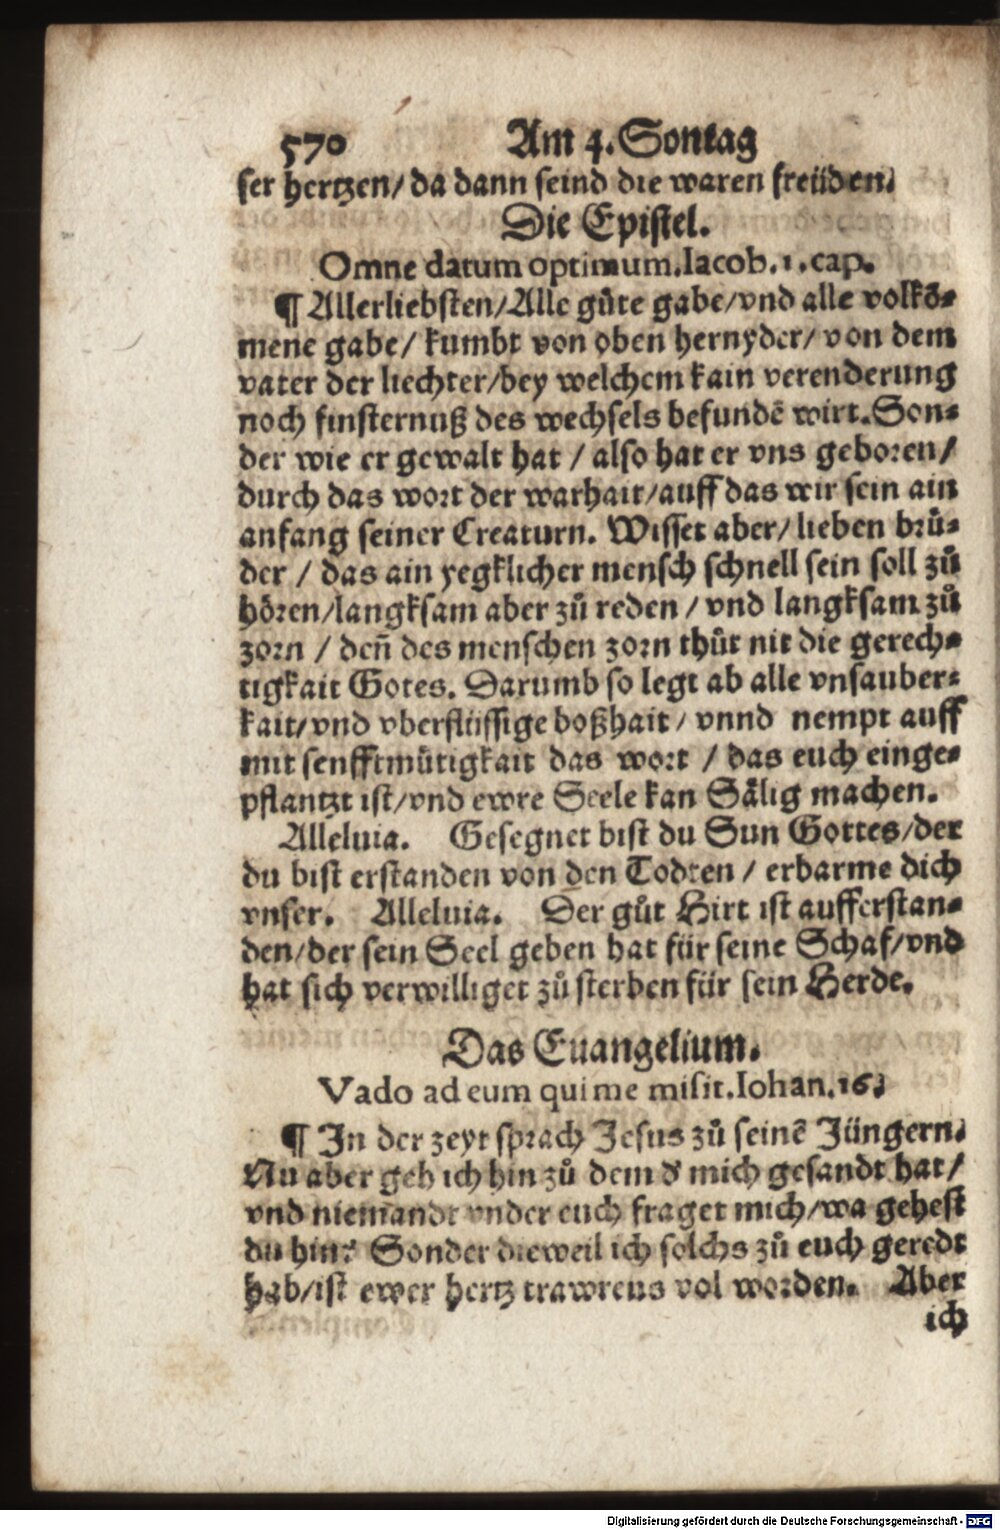 570 Am 4. Sontag
ser hertzen/ da dann seind die waren freüden.
Die Epistel.
Omne datum optimum. Iacob. 1. cap.
¶ Allerliebsten/ Alle gůte gabe/ vnd alle volkõ-
mene gabe/ kumbt von oben hernyder/ von dem
vater der liechter/ bey welchem kain verenderung
noch finsternuß des wechsels befundẽ wirt. Son-
der wie er gewalt hat / also hat er vns geboren/
durch das wort der warhait/ auff das wir sein ain
anfang seiner Creaturn. Wisset aber/ lieben brů-
der / das ain yegklicher mensch schnell sein soll zů
hören/ langksam aber zů reden / vnd langksam zů
zorn / deñ des menschen zorn thůt nit die gerech-
tigkait Gotes. Darumb so legt ab alle vnsauber-
kait/ vnd vberflüssige boßhait / vnnd nempt auff
mit senfftmütigkait das wort / das euch einge-
pflantzt ist/ vnd ewre Seele kan Sälig machen.
Alleluia. Gesegnet bist du Sun Gottes/ der
du bist erstanden von den Todten / erbarme dich
vnser. Alleluia. Der gůt Hirt ist aufferstan-
den/ der sein Seel geben hat für seine Schaf/ vnd
hat sich verwilliget zů sterben für sein Herde.
Das Euangelium.
Vado ad eum qui me misit. Iohan. 16.
¶ In der zeyt sprach Jesus zů seinẽ Jüngern.
Nu aber geh ich hin zů dem d' mich gesandt hat/
vnd niemandt vnder euch fraget mich/ wa gehest
du hin? Sonder dieweil ich solchs zů euch geredt
hab/ ist ewer hertz trawrens vol worden. Aber
ich
Digitalisierung gefördert durch die Deutsche Forschungsgemeinschaft - DFG